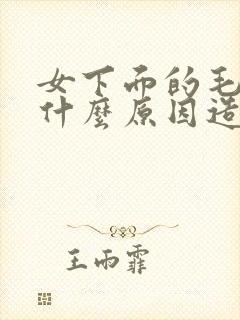 女下面的毛
什麼原因造
王雨霏